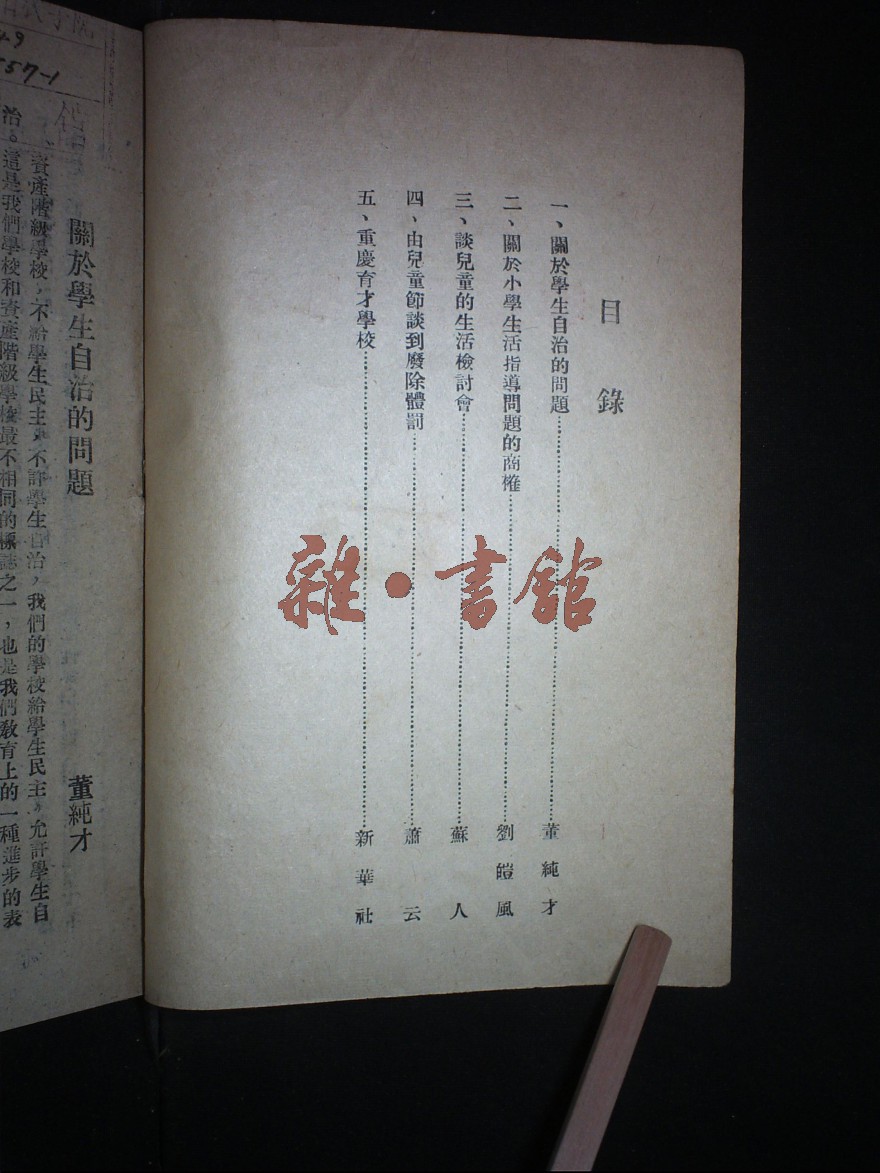 目錄
一、關於學生自治的問題……董純才
二、關於小學生活指導問題的商榷……劉皚風
三、談兒童的生活檢討會……蘇人
四、由兒童節談到廢除體罰……蕭云
五、重慶育才學校……新華社
雜·書館
49
557-1
關於學生自治的問題
董純才
資產階級學校,不給學生民主,不許學生自治,我們的學校給學生民主,允許學生自
治。這是我們學校和資產階級學校最不相同的標誌之一,也是我們教育上的一種進步的表